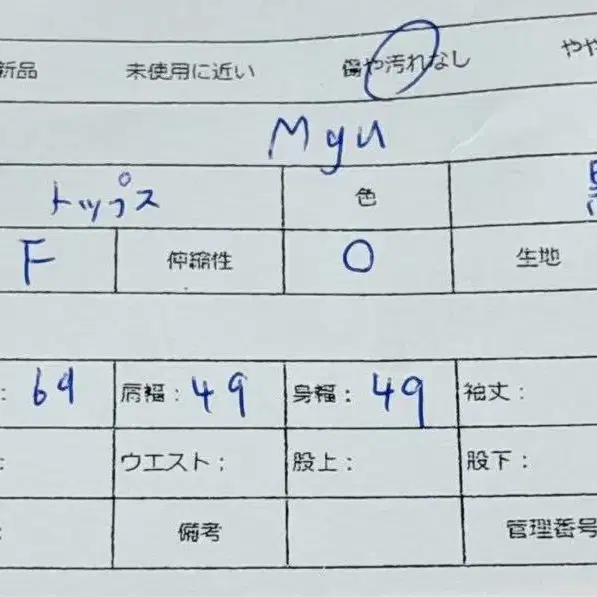 新品 未使用に近い 傷や汚れなし やや
Myu
トップス 色 黒
F 伸縮性 O 生地
: 69 肩幅: 49 身幅: 49 袖丈:
: ウエスト: 股上: 股下:
: 備考 管理番号